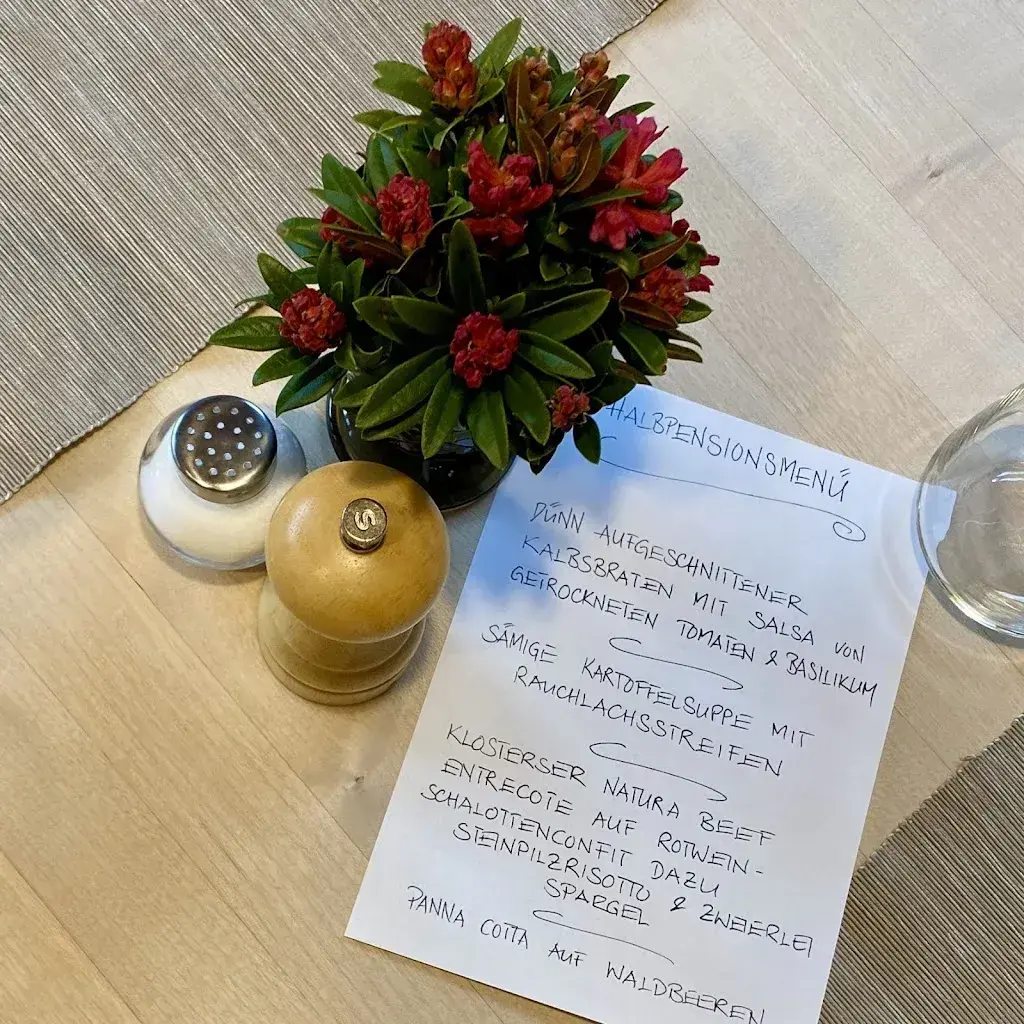 HALBPENSIONSMENÜ
DÜNN AUFGESCHNITTENER
KALBSBRATEN MIT SALSA VON
GETROCKNETEN TOMATEN & BASILIKUM
SÄMIGE KARTOFFELSUPPE MIT
RAUCHLACHSSTREIFEN
KLOSTERSER NATURA BEEF
ENTRECOTE AUF ROTWEIN-
SCHALOTTENCONFIT DAZU
STEINPILZRISOTTO & ZWEIERLEI
SPARGEL
PANNA COTTA AUF WALDBEEREN
S